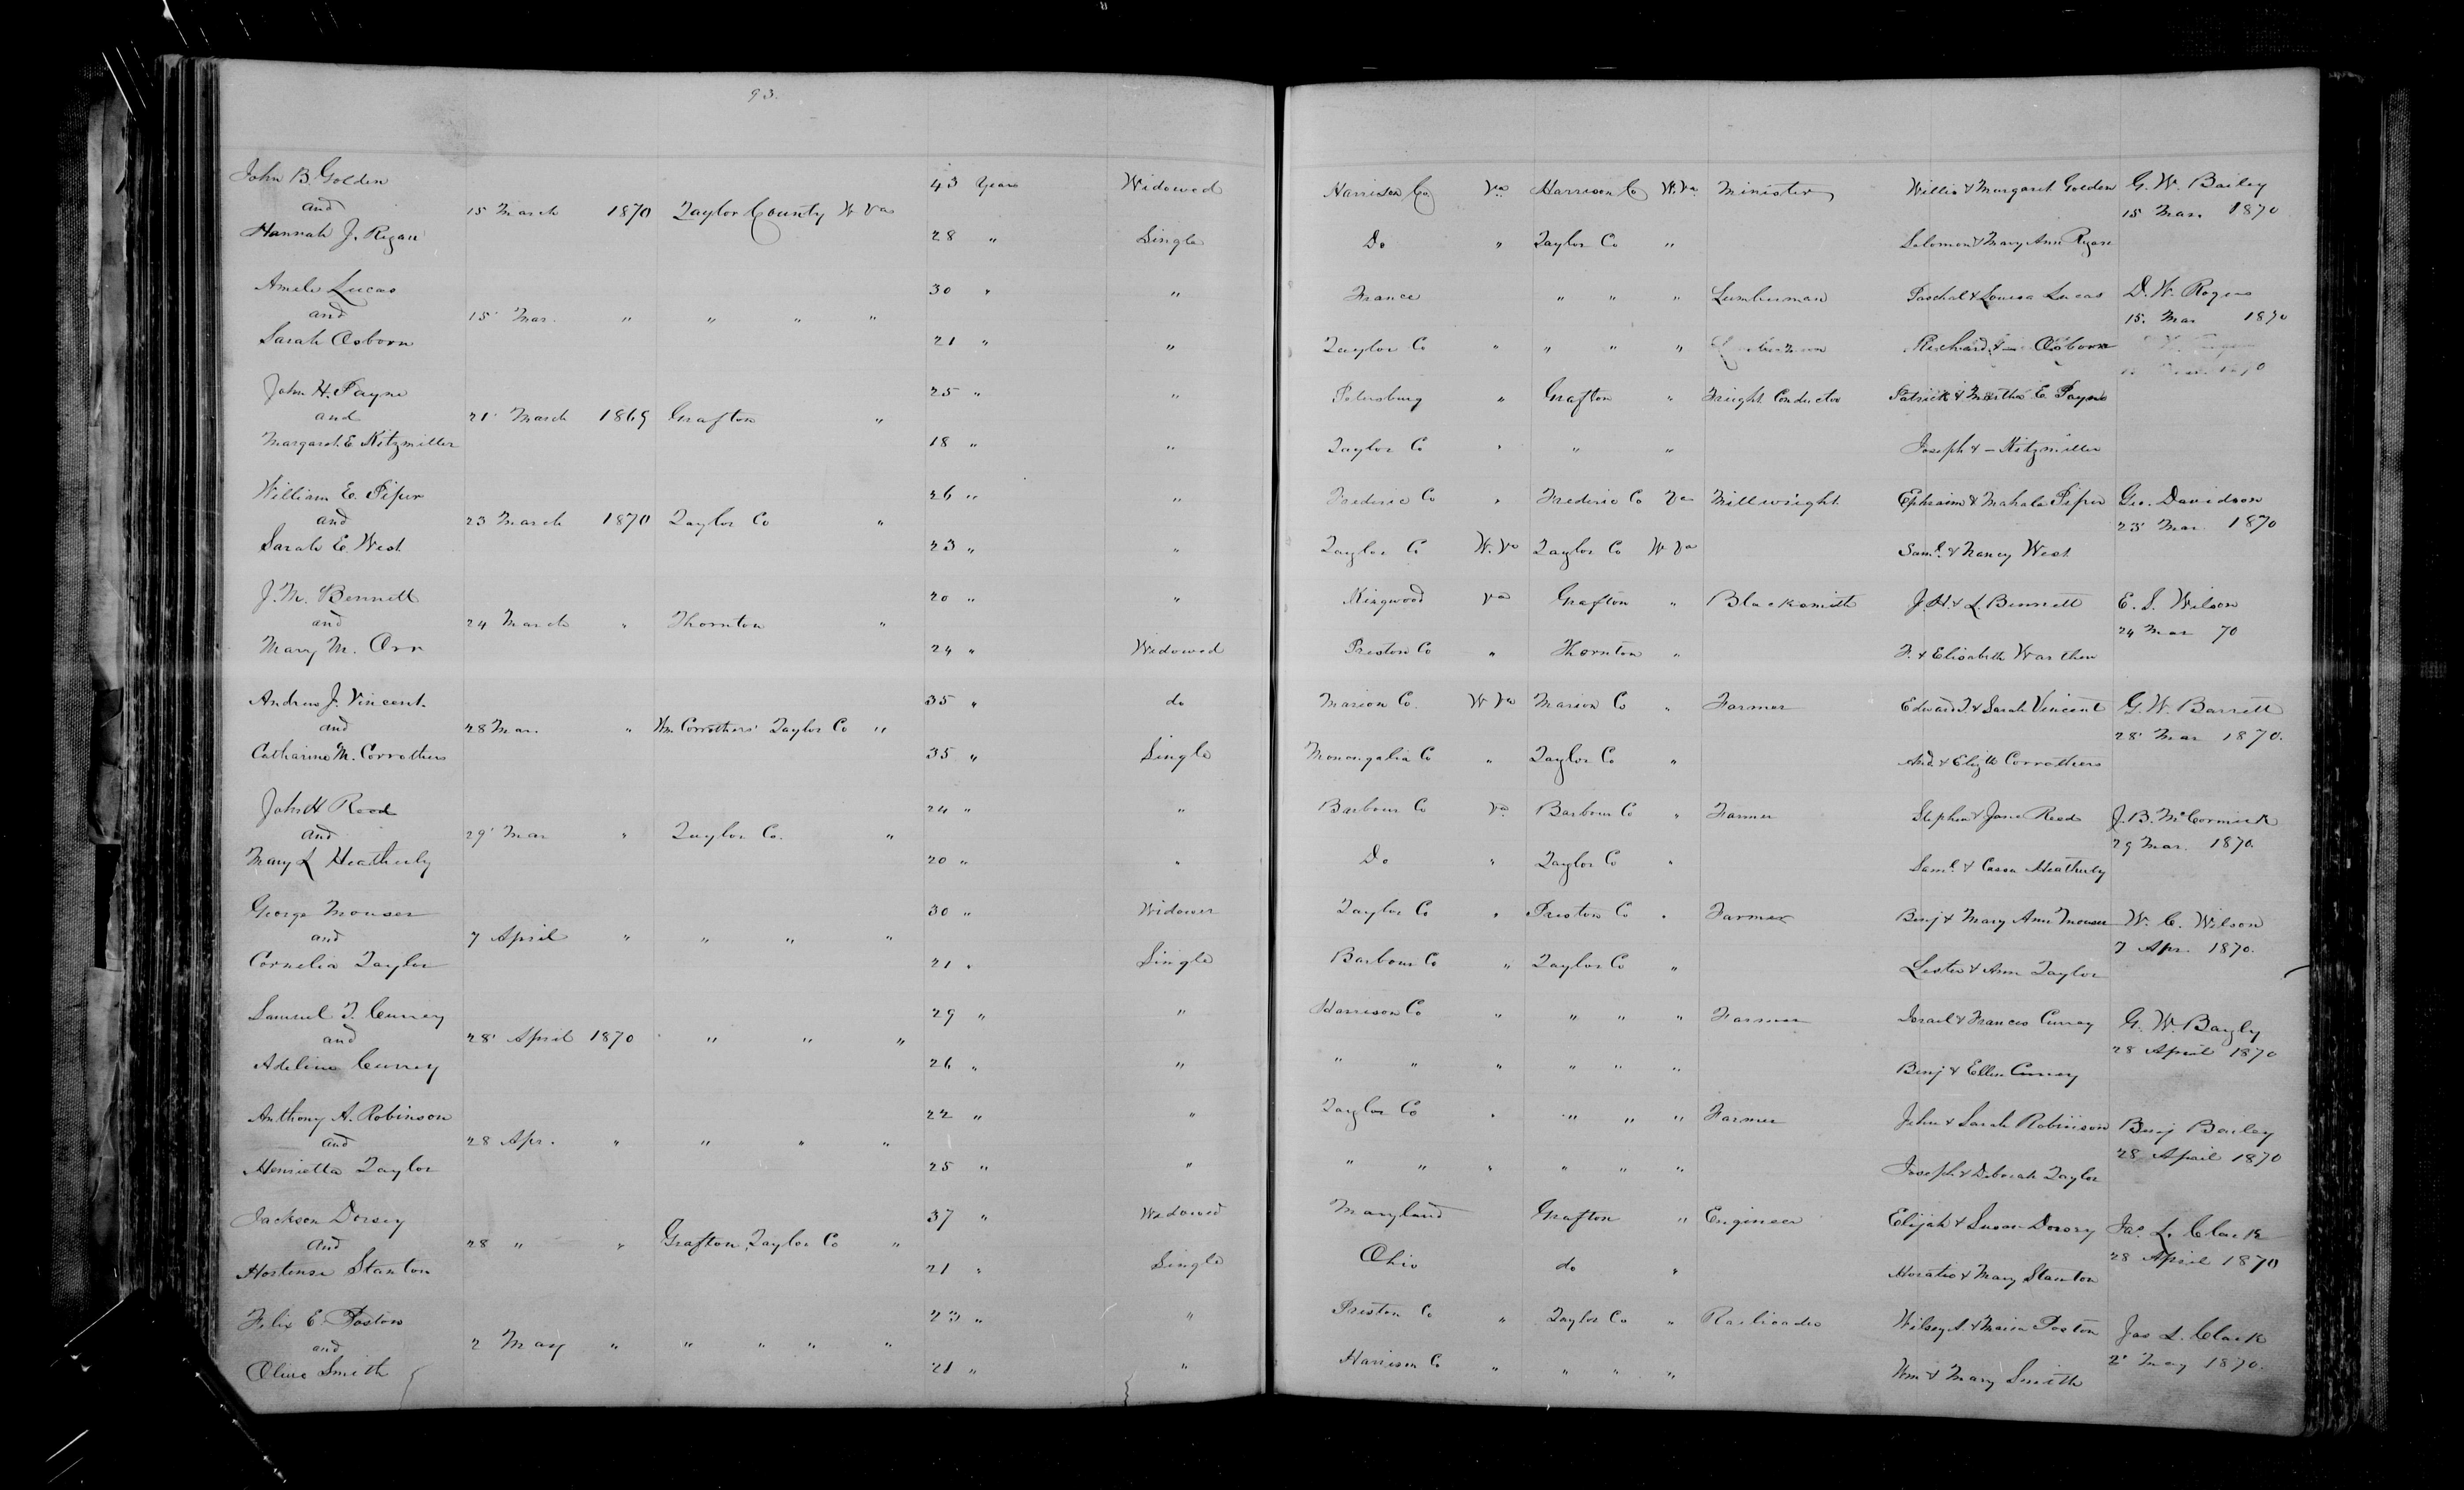 93.
John B. Golden 43 Years Widowed Harrison Co Va Harrison Co W. Va Minister Willis & Margaret Golden G. W. Bailey
and 15 March 1870 Taylor County W Va 15 Mar. 1870
Hannah J. Rigan 28 " Single Do " Taylor Co " Solomon & Mary Ann Rigan
Amele Lucas 30 " " France " " " Lumberman Paschal & Louisa Lucas D. W. Rogers
and 15 Mar. " " " " 15. Mar 1870
Sarah Osborn 21 " " Taylor Co " " " " Richard & — Osborn
John H. Payne 25 " " Petersburg " Grafton " Freight Conductor Patrick & Martha E. Payne
and 21 March 1869 Grafton "
Margaret E Kitzmiller 18 " " Taylor Co " " " Joseph & — Kitzmiller
William E. Pifer 26 " " Frederic Co " Frederic Co Va Millwright Ephraim & Mahala Pifer Geo. Davidson
and 23 March 1870 Taylor Co " 23 Mar. 1870
Sarah E. West 23 " " Taylor Co W. Va Taylor Co W Va Saml. & Nancy West
J. M. Bennett 20 " " Kingwood Va Grafton " Blacksmith J. H. & L. Bennett E. S. Wilson
and 24 March " Thornton " 24 Mar 70
Mary M. Orr 24 " Widowed Preston Co " Thornton " F. & Elisabeth Warthen
Andrew J. Vincent. 35 " do Marion Co. W Va Marion Co " Farmer Edward T. & Sarah Vincent G. W. Barrett
and 28 Mar. " Wm. Corrothers' Taylor Co " 28 Mar 1870.
Catharine M. Corrothers 35 " Single Monongalia Co " Taylor Co " And. & Elizth Corrothers
John H Reed 24 " " Barbour Co Va. Barbour Co " Farmer Stephen & Jane Reed J. B. McCormick
and 29 Mar " Taylor Co. " 29 Mar. 1870.
Mary L Heatherly 20 " " Do " Taylor Co " Saml. & Cassa Heatherly
George Mouser 30 " Widower Taylor Co " Preston Co " Farmer Benj & Mary Ann Mouser W. C. Wilson
and 7 April " " " " 7 Apr. 1870.
Cornelia Taylor 21 " Single Barbour Co " Taylor Co " Lester & Ann Taylor
Samuel T. Currey 29 " " Harrison Co " " " " Farmer Israel & Frances Currey G. W. Bayly
and 28 April 1870 " " " 28 April 1870
Adeline Currey 26 " " " " " " " " Benj & Ellen Currey
Anthony A. Robinson 22 " " Taylor Co " " " " Farmer John & Sarah Robinson Benj Bailey
and 28 Apr. " " " " 28 April 1870
Henrietta Taylor 25 " " " " " " " " Joseph & Deborah Taylor
Jackson Dorsey 37 " Widowed Maryland Grafton " Engineer Elijah & Susan Dorsey Jas. L. Clark
and 28 " " Grafton, Taylor Co " 28 April 1870
Hortense Stanton 21 " Single Ohio do " Horatio & Mary Stanton
Felix E. Poston 23 " " Preston Co " Taylor Co " Railroader Wilsey A. & Maria Poston Jas L. Clark
and 2 May " " " " " 2 May 1870.
Olive Smith 21 " " Harrison Co " " " " Wm & Mary Smith